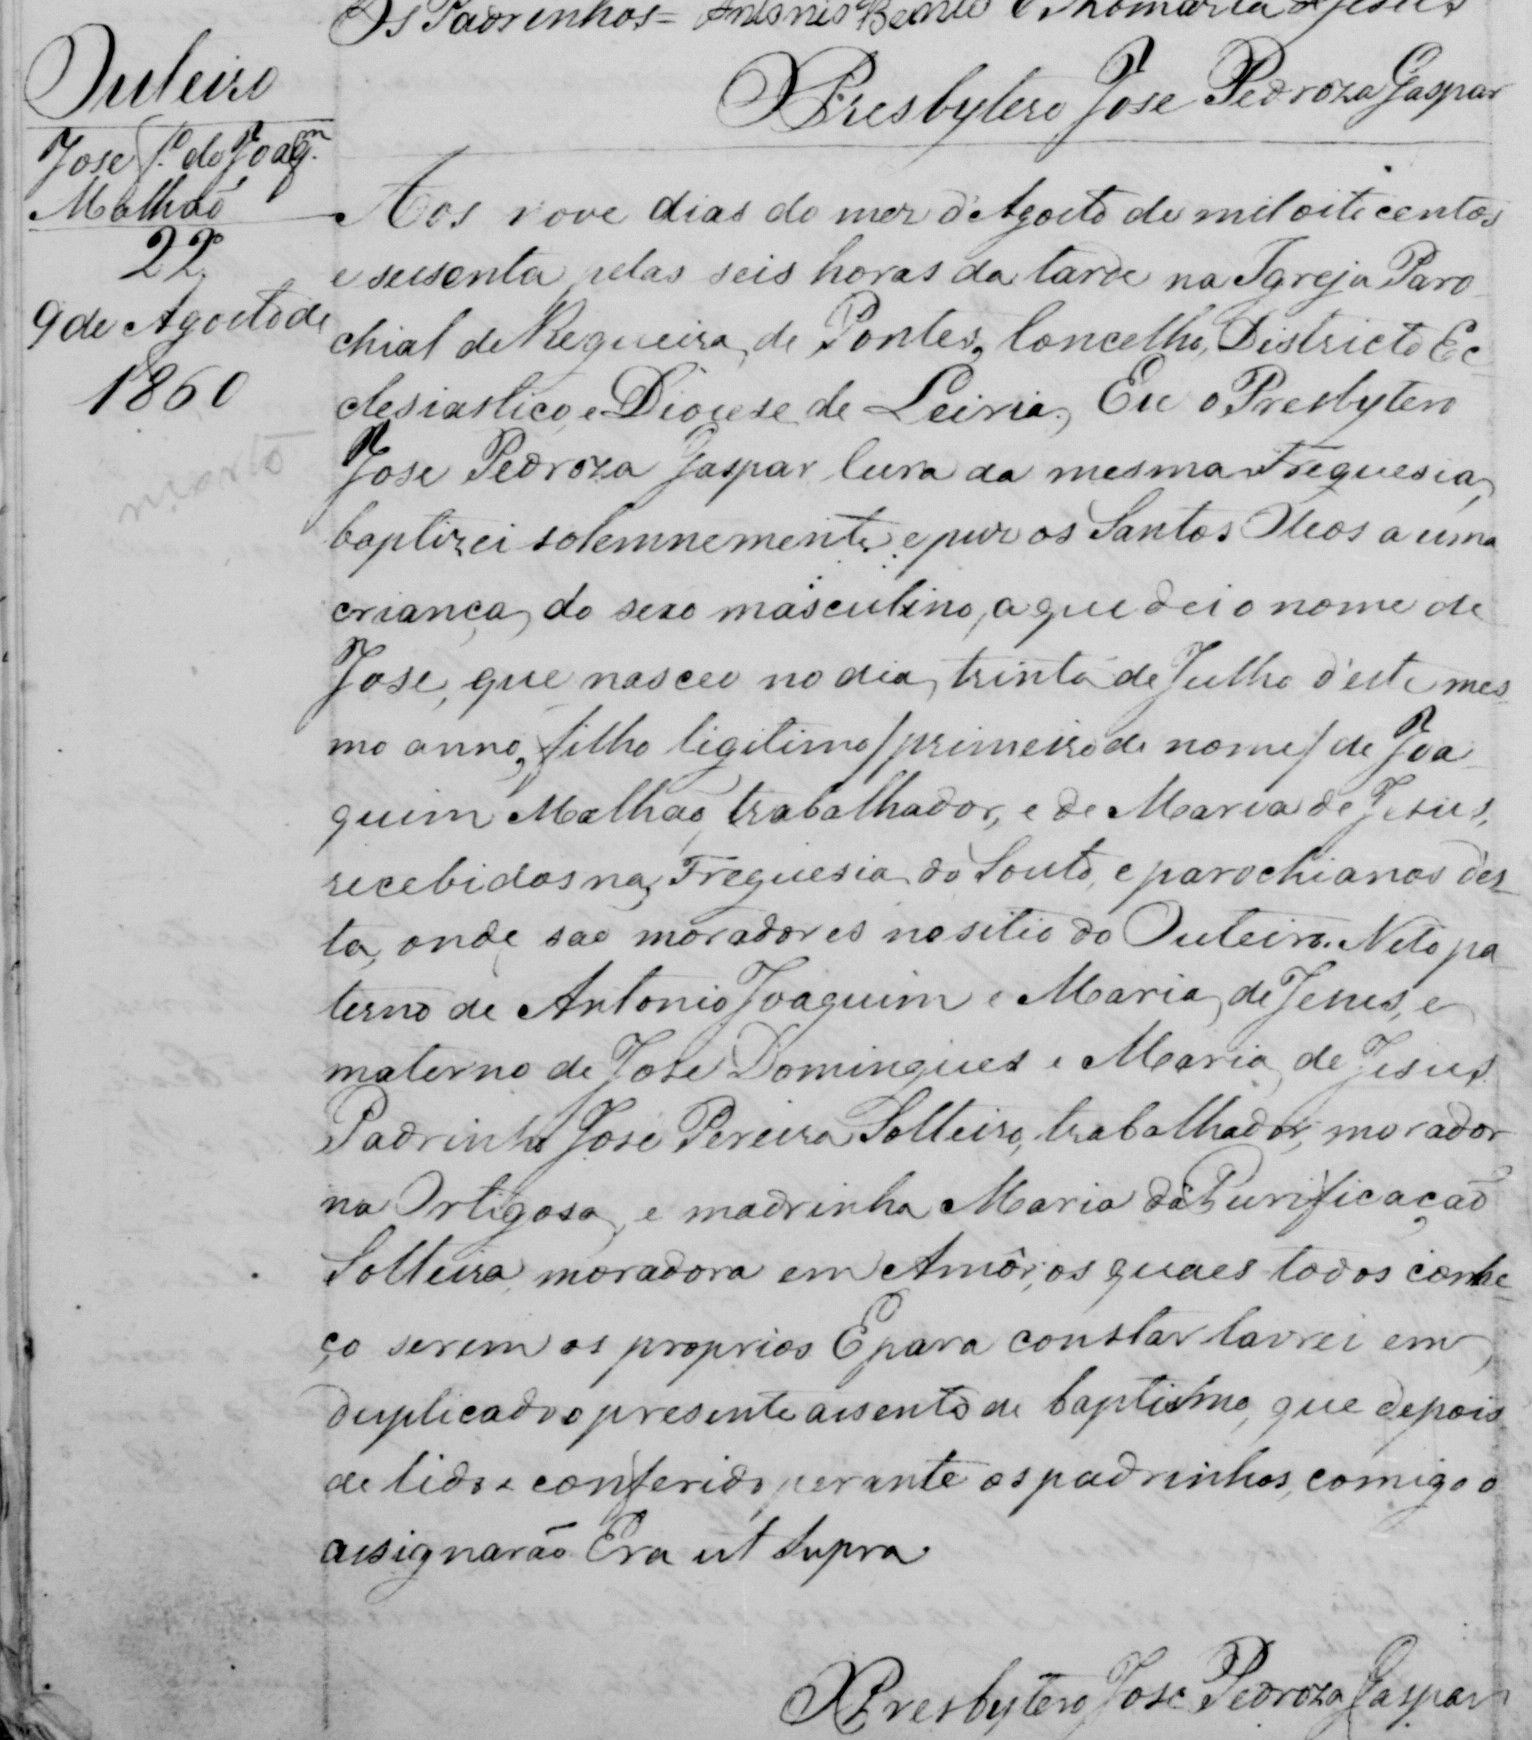 Os Padrinhos = Antonio Bento e Thomazia de Jesus
O Presbytero Jose Pedroza Gaspar
Outeiro
Jose f.º de Joaq.m
Malhaõ
22
9 de Agosto de
1860
morto
Aos nove dias do mez d'Agosto de mil oito centos
e sessenta pelas seis horas da tarde na Igreja Paro
chial de Regueira de Pontes, Concelho, Districto Ec
clesiastico, e Diocese de Leiria, Eu o Presbytero
Jose Pedroza Gaspar Cura da mesma Freguesia,
baptizei solemnemente e puz os Santos Oleos a uma
criança do sexo masculino, a que dei o nome de
Jose, que nasceu no dia trinta de Julho d'este mes
mo anno, filho ligitimo / primeiro de nome / de Joa
quim Malhaõ, trabalhador, e de Maria de Jesus,
recebidos na Freguesia do Souto, e parochianos des
ta, onde saõ moradores no sitio do Outeiro. Neto pa
terno de Antonio Joaquim e Maria de Jesus, e
materno de Jose Domingues e Maria de Jesus
Padrinho Jose Pereira Solteiro, trabalhador, morador
na Ortigosa, e madrinha Maria da Purificaçaõ
Solteira, moradora em Amôr, os quaes todos conhe
ço serem os proprios E para constar lavrei em
duplicado o presente assento de baptismo, que depois
de lido e conferido perante os padrinhos, comigo o
assignaraõ Era ut supra
O Presbytero Jose Pedroza Gaspar